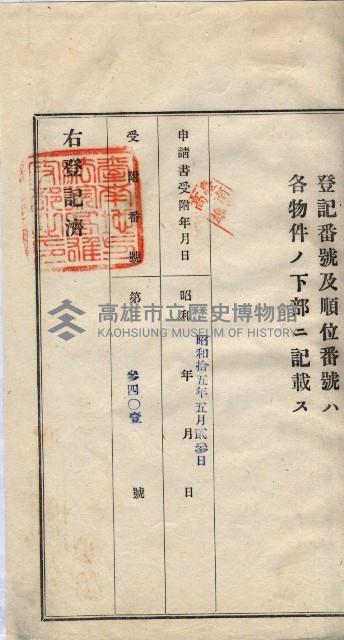 登記番號及順位番號ハ
各物件ノ下部ニ記載ス
申請書受附年月日
昭和 年 月 日
昭和拾五年五月貳參日
受附番號
第 號
參四〇壹
右登記濟
高雄市立歷史博物館
KAOHSIUNG MUSEUM OF HISTORY